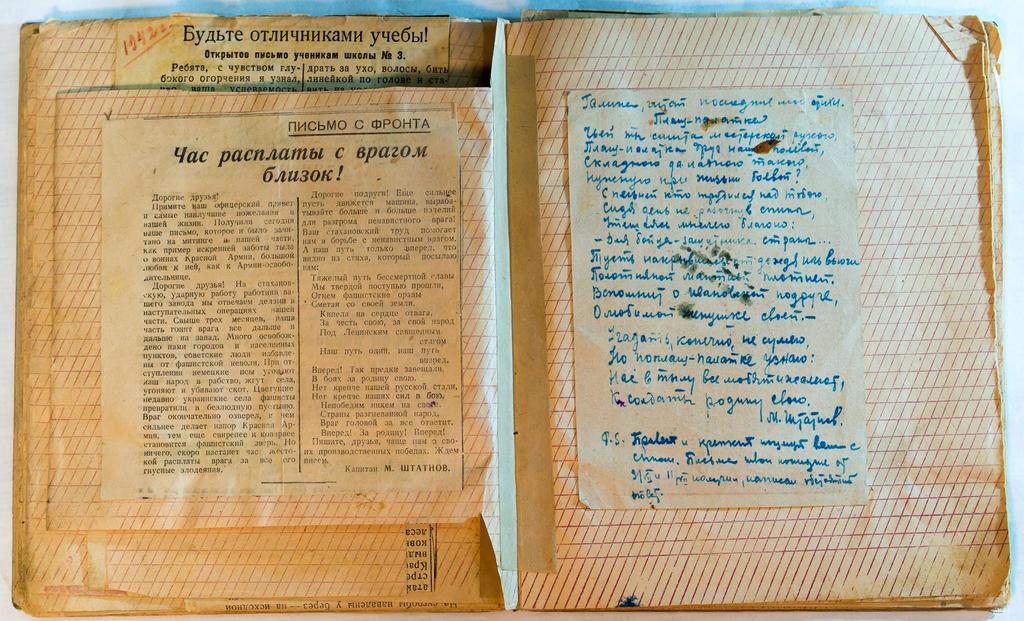 1942
Будьте отличниками учебы!
Открытое письмо ученикам школы № 3.
Ребята, с чувством глу-
бокого огорчения я узнал,
ваша успеваемость
драть за ухо, волосы, бить
линейкой по голове и ста-
вить на
ПИСЬМО С ФРОНТА
Час расплаты с врагом
близок!
Дорогие друзья!
Примите наш офицерский привет
и самые наилучшие пожелания в
вашей жизни. Получили сегодня
ваше письмо, которое и было зачи-
тано на митинге в нашей части,
как пример искренней заботы тыла
о воинах Красной Армии, большой
любви к ней, как к Армии-освобо-
дительнице.
Дорогие друзья! На стаханов-
скую, ударную работу работниц ва-
шего завода мы отвечаем делами в
наступательных операциях нашей
части. Свыше трех месяцев, наша
часть гонит врага все дальше и
дальше на запад. Много освобож-
дено нами городов и населенных
пунктов, советские люди избавле-
ны от фашистской неволи. При от-
ступлении немецкие псы угоняют
наш народ в рабство, жгут села,
угоняют и убивают скот. Цветущие
недавно украинские села фашисты
превратили в безлюдную пустыню.
Враг окончательно озверел, и чем
сильнее делает напор Красная Ар-
мия, тем еще свирепее и коварнее
становится фашистский зверь. Но
ничего, скоро настанет час жесто-
кой расплаты врага за все его
гнусные злодеяния.
Дорогие подруги! Еще сильнее
пусть движется машина, выраба-
тывайте больше и больше изделий
для разгрома ненавистного врага!
Ваш стахановский труд помогает
нам в борьбе с ненавистным врагом.
А наш путь только вперед, что
видно из стиха, который посылаю
вам:
Тяжелый путь бессмертной славы
Мы твердой поступью прошли,
Огнем фашистские оравы
Сметая со своей земли.
Кипела на сердце отвага,
За честь свою, за свой народ
Под Ленинским священным
стягом
Наш путь один, наш путь
вперед.
Вперед! Так предки завещали,
В боях за родину свою.
Нет крепче нашей русской стали,
Нет крепче наших сил в бою.
Непобедим никем на свете.
Страны разгневанной народ,
Враг головой за все ответит.
Вперед! За родину! Вперед!
Пишите, друзья, чаще нам о сво-
их производственных победах. Ждем
писем.
Капитан М. ШТАТНОВ.
На сугробы навалены у берез — на исходной
Галина, читай последние мои стихи.
Плащ-палатка
Чьей ты сшита мастерской рукою,
Плащ-палатка друг наш полевой,
Складного да ладного такою,
Нужную при жизни боевой?
С песней кто трудился над тобою,
Сидя день не разогнув спины,
— Для бойца-защитника страны...
Пусть накрывшись от дождя иль вьюги
Полотняной
Вспомнит о ивановской подруге,
О любимой девушке своей. —
Угадать, конечно, не сумею,
Но по плащ-палатке узнаю:
Нас в тылу все любят и жалеют,
К солдаты родину свою.
М. Штатнов.
P.S. Привет и крепкий поцелуй вам с
сыном. Письма твои последние от
и получил, написал
ответ.